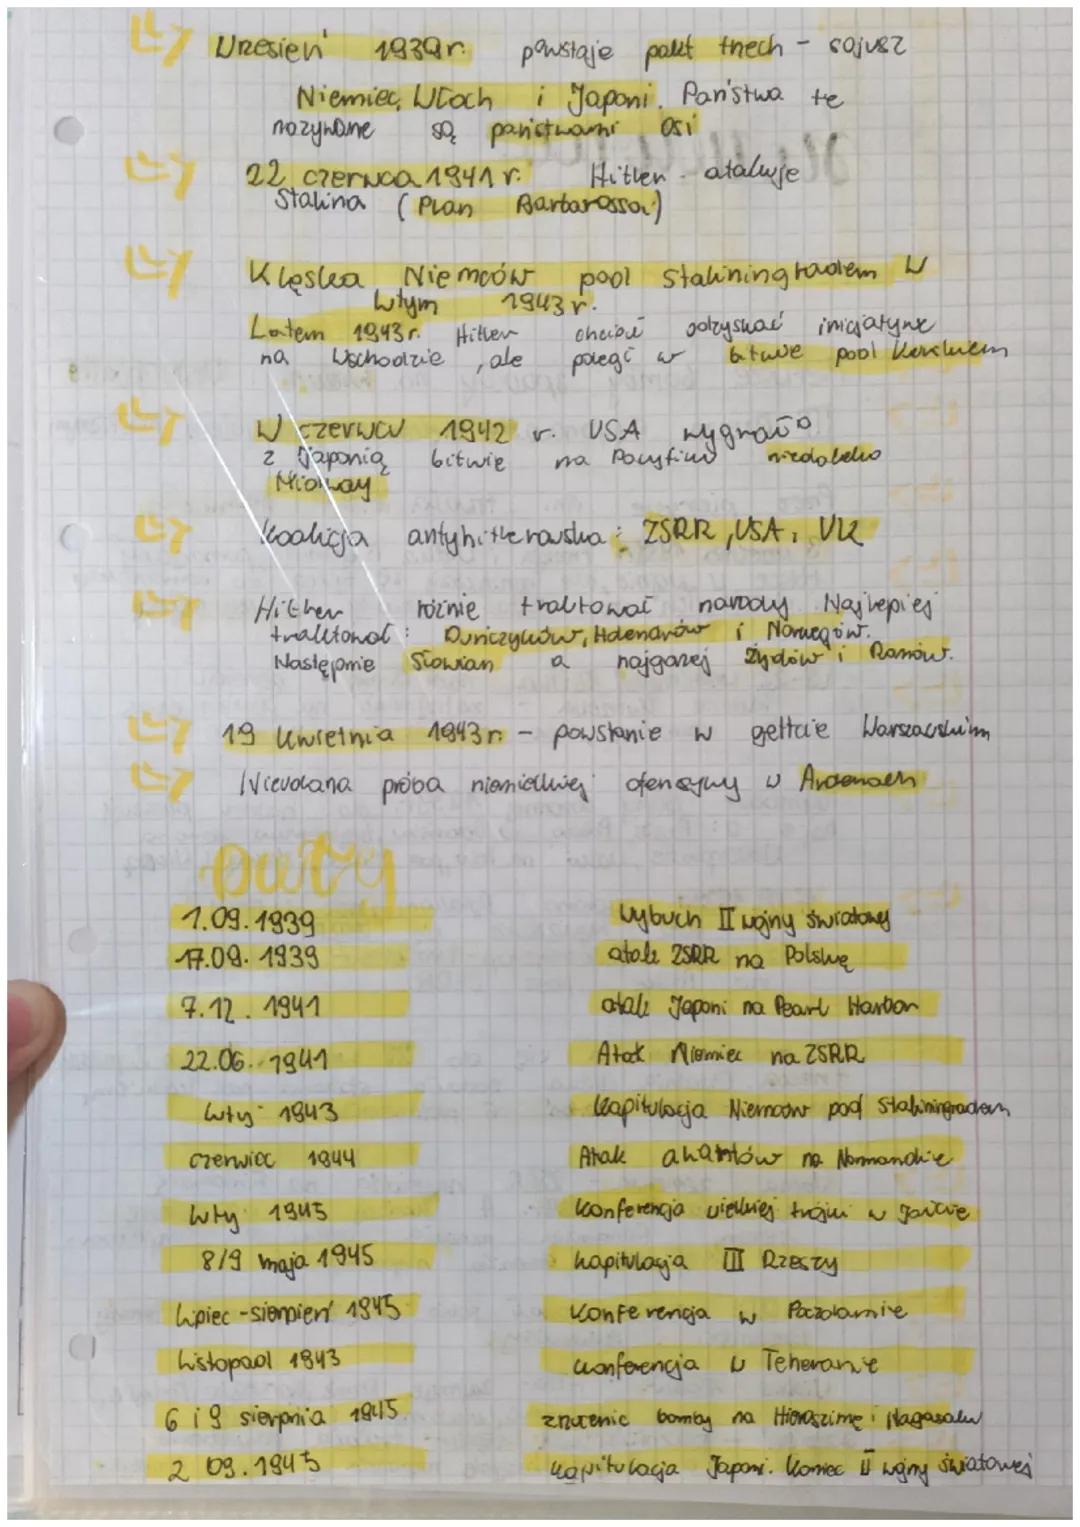 Wrzesień 1939r. powstaje pakt trzech - sojusz
Niemiec, Włoch i Japoni. Państwa te
nazywane są państwami osi
22 czerwca 1941 r. Hitler atakuje
Stalina (Plan Barbarossa)
Klęska Niemców pod Staliningradem w
lutym 1943 r.
Latem 1943 r. Hitler chciał odzyskać inicjatywę
na Wschodzie, ale poległ w bitwie pod Kurskiem
W czerwcu 1942 r. USA wygrało
z Japonią bitwię na Pacyfiku niedaleko
Midway
Koalicja antyhitlerowska: ZSRR, USA, UK
Hitler różnie traktował narody. Najlepiej
traktował: Duńczyków, Holendrów i Norwegów.
Następnie Słowian a najgorzej Żydów i Romów.
19 kwietnia 1943 r. - powstanie w gettcie Warszawskim
Nieudana próba niemieckiej ofensywy w Ardenach
Daty
1.09.1939 wybuch II wojny światowej
17.09.1939 atak ZSRR na Polskę
7.12.1941 atak Japoni na Pearl Harbor
22.06.1941 Atak Niemiec na ZSRR
luty 1943 kapitulacja Niemców pod Staliningradem
czerwiec 1944 Atak aliantów na Normandię
luty 1945 konferencja wielkiej trójki w Jałcie
8/9 maja 1945 kapitulacja III Rzeszy
lipiec - sierpień 1945 konferencja w Poczdamie
listopad 1943 konferencja w Teheranie
6 i 9 sierpnia 1945 zrzucenie bomby na Hiroszimę i Nagasaki
2 09.1945 kapitulacja Japoni. Koniec II wojny światowej